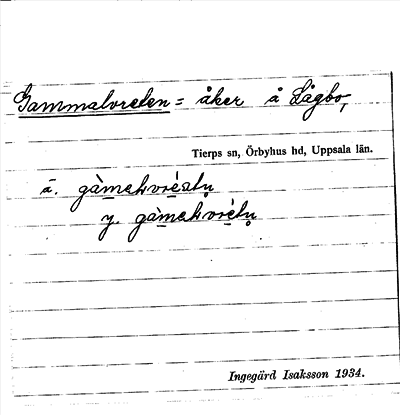 Gammalvreten = åker å Lågbo,
Tierps sn, Örbyhus hd, Uppsala län.
ä. gàmalvréstu̥
y. gàmalvrétu̥
Ingegärd Isaksson 1934.